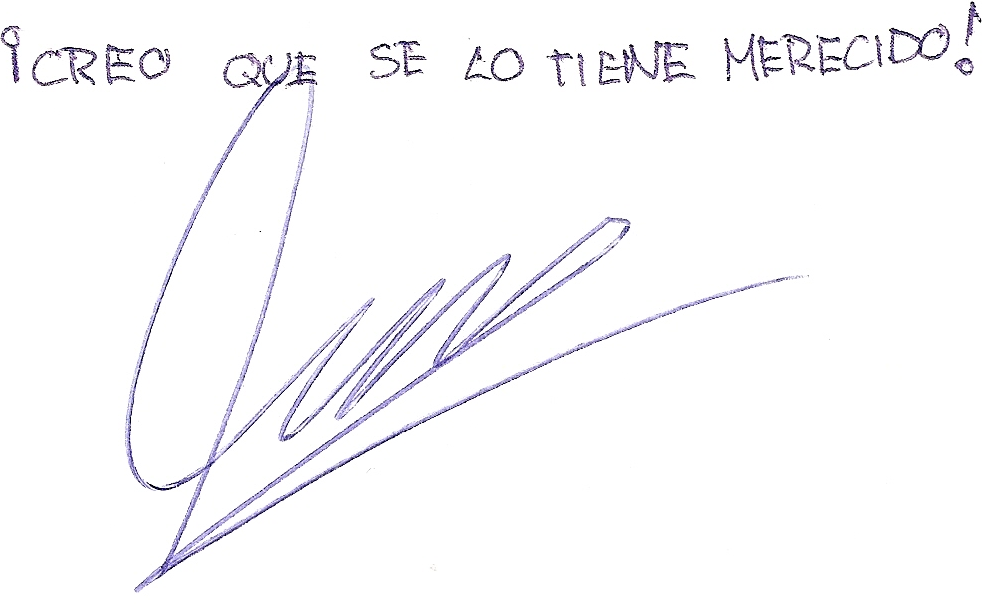 ¡CREO QUE SE LO TIENE MERECIDO!